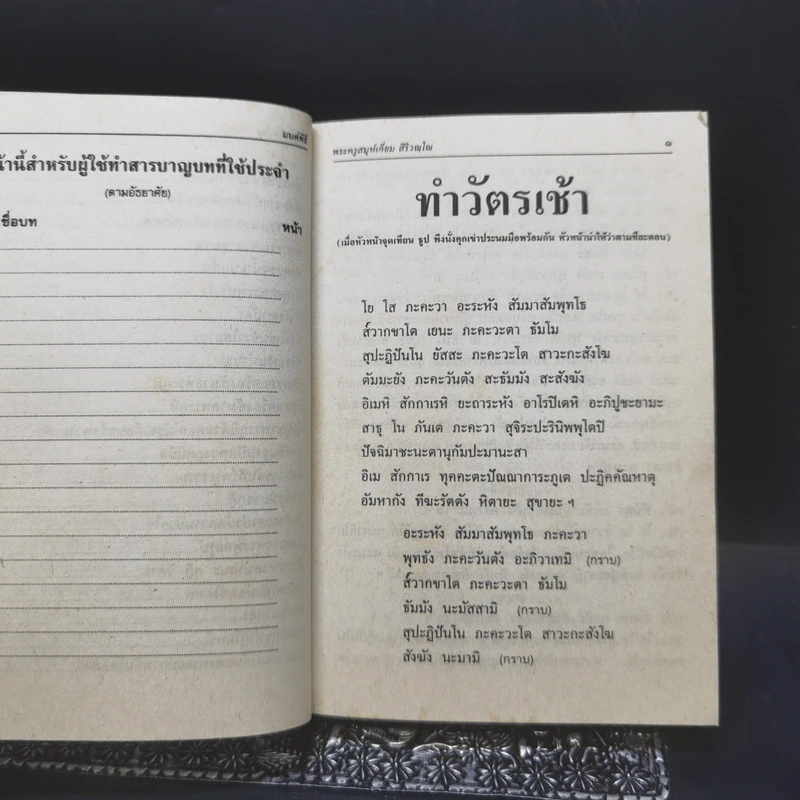 มนต์พิธี
น้านี้สำหรับผู้ใช้ทำสารบาญบทที่ใช้ประจำ
(ตามอัธยาศัย)
ชื่อบท หน้า
พระครูสมุห์เอี่ยม สิริวณฺโณ ๑
ทำวัตรเช้า
(เมื่อหัวหน้าจุดเทียน ธูป พึงนั่งคุกเข่าประนมมือพร้อมกัน หัวหน้านำให้ว่าตามทีละตอน)
โย โส ภะคะวา อะระหัง สัมมาสัมพุทโธ
ส๎วากขาโต เยนะ ภะคะวะตา ธัมโม
สุปะฏิปันโน ยัสสะ ภะคะวะโต สาวะกะสังโฆ
ตัมมะยัง ภะคะวันตัง สะธัมมัง สะสังฆัง
อิเมหิ สักกาเรหิ ยะถาระหัง อาโรปิเตหิ อะภิปูชะยามะ
สาธุ โน ภันเต ภะคะวา สุจิระปะรินิพพุโตปิ
ปัจฉิมาชะนะตานุกัมปะมานะสา
อิเม สักกาเร ทุคคะตะปัณณาการะภูเต ปะฏิคคัณหาตุ
อัมหากัง ทีฆะรัตตัง หิตายะ สุขายะ ฯ
อะระหัง สัมมาสัมพุทโธ ภะคะวา
พุทธัง ภะคะวันตัง อะภิวาเทมิ (กราบ)
ส๎วากขาโต ภะคะวะตา ธัมโม
ธัมมัง นะมัสสามิ (กราบ)
สุปะฏิปันโน ภะคะวะโต สาวะกะสังโฆ
สังฆัง นะมามิ (กราบ)